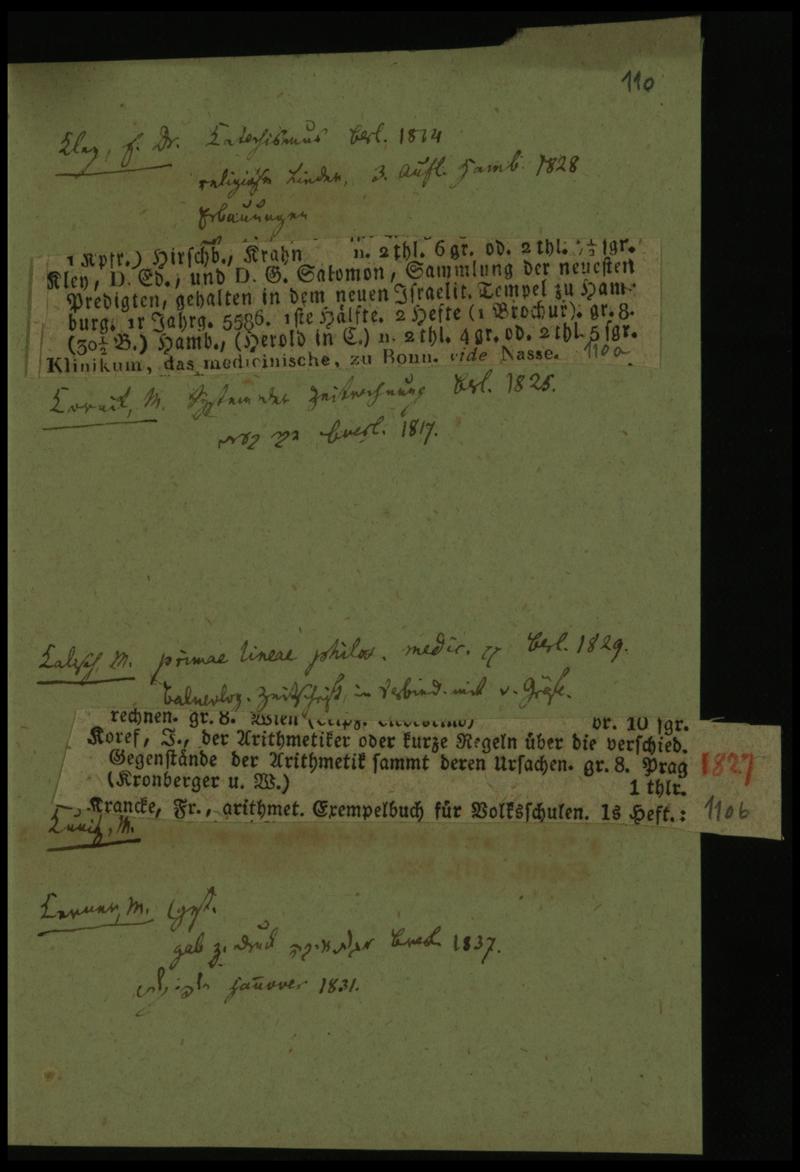 110
Kley, E. Dr. Catechismus Berl. 1814
religiöse Lieder, 3. Aufl. Hamb. 1828
Erbauungen
1 Kpfr.) Hirschb., Krahn n. 2 thl. 6 gr. od. 2 thl. 7½ sgr.
Kley, D. Ed., und D. G. Salomon, Sammlung der neuesten
Predigten, gehalten in dem neuen Israelit. Tempel zu Ham-
burg. 1r Jahrg. 5586. 1ste Hälfte. 2 Hefte (1 Brochur). gr. 8.
(30½ B.) Hamb., (Herold in C.) n. 2 thl. 4 gr. od. 2 thl. 5 sgr.
Klinikum, das medicinische, zu Bonn. vide Nasse. 110a
M. System der Zeitrechnung Berl. 1825.
Bresl. 1817.
Kalisch M. primae lineae philos. medic. Berl. 1829.
Balneolog. Zeitschrift, in Verbind. mit v. Gräfe.
rechnen. gr. 8. Wien br. 10 sgr.
Koref, J., der Arithmetiker oder kurze Regeln über die verschied.
Gegenstände der Arithmetik sammt deren Ursachen. gr. 8. Prag 1827
(Kronberger u. W.) 1 thlr.
Krancke, Fr., arithmet. Exempelbuch für Volksschulen. 1s Heft.: 110b
M.
M.
gab z. Druck Bresl. 1837.
Hannover 1831.